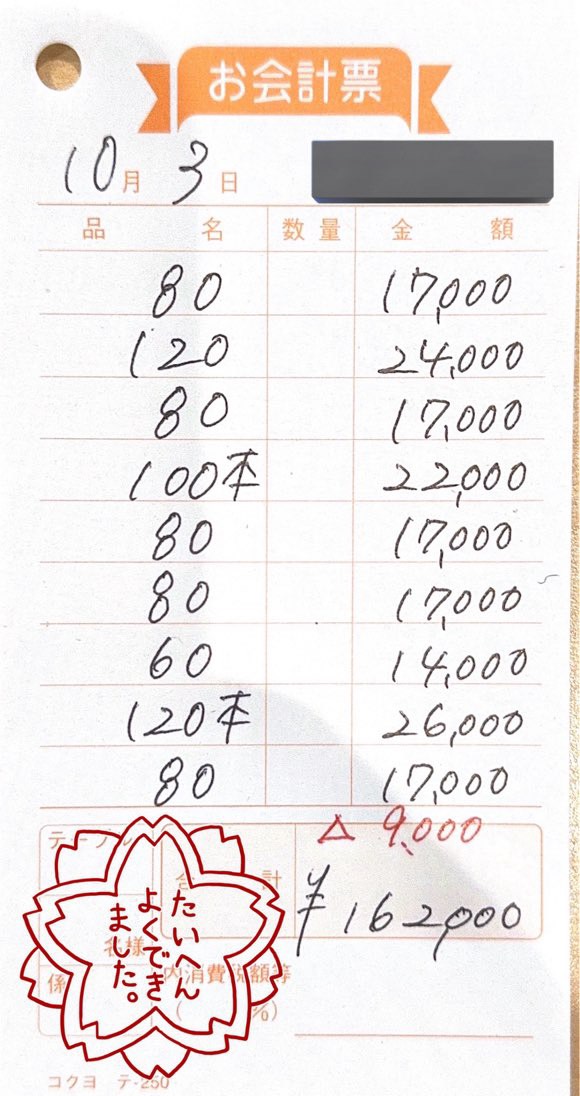 お会計票
10月 3日
品名 数量 金額
80 17,000
120 24,000
80 17,000
100本 22,000
80 17,000
80 17,000
60 14,000
120本 26,000
80 17,000
△ 9,000
テーブル 合計 ¥162,000
名様
係 内消費税額等
( %)
たいへん
よくでき
ました。
コクヨ テ-250